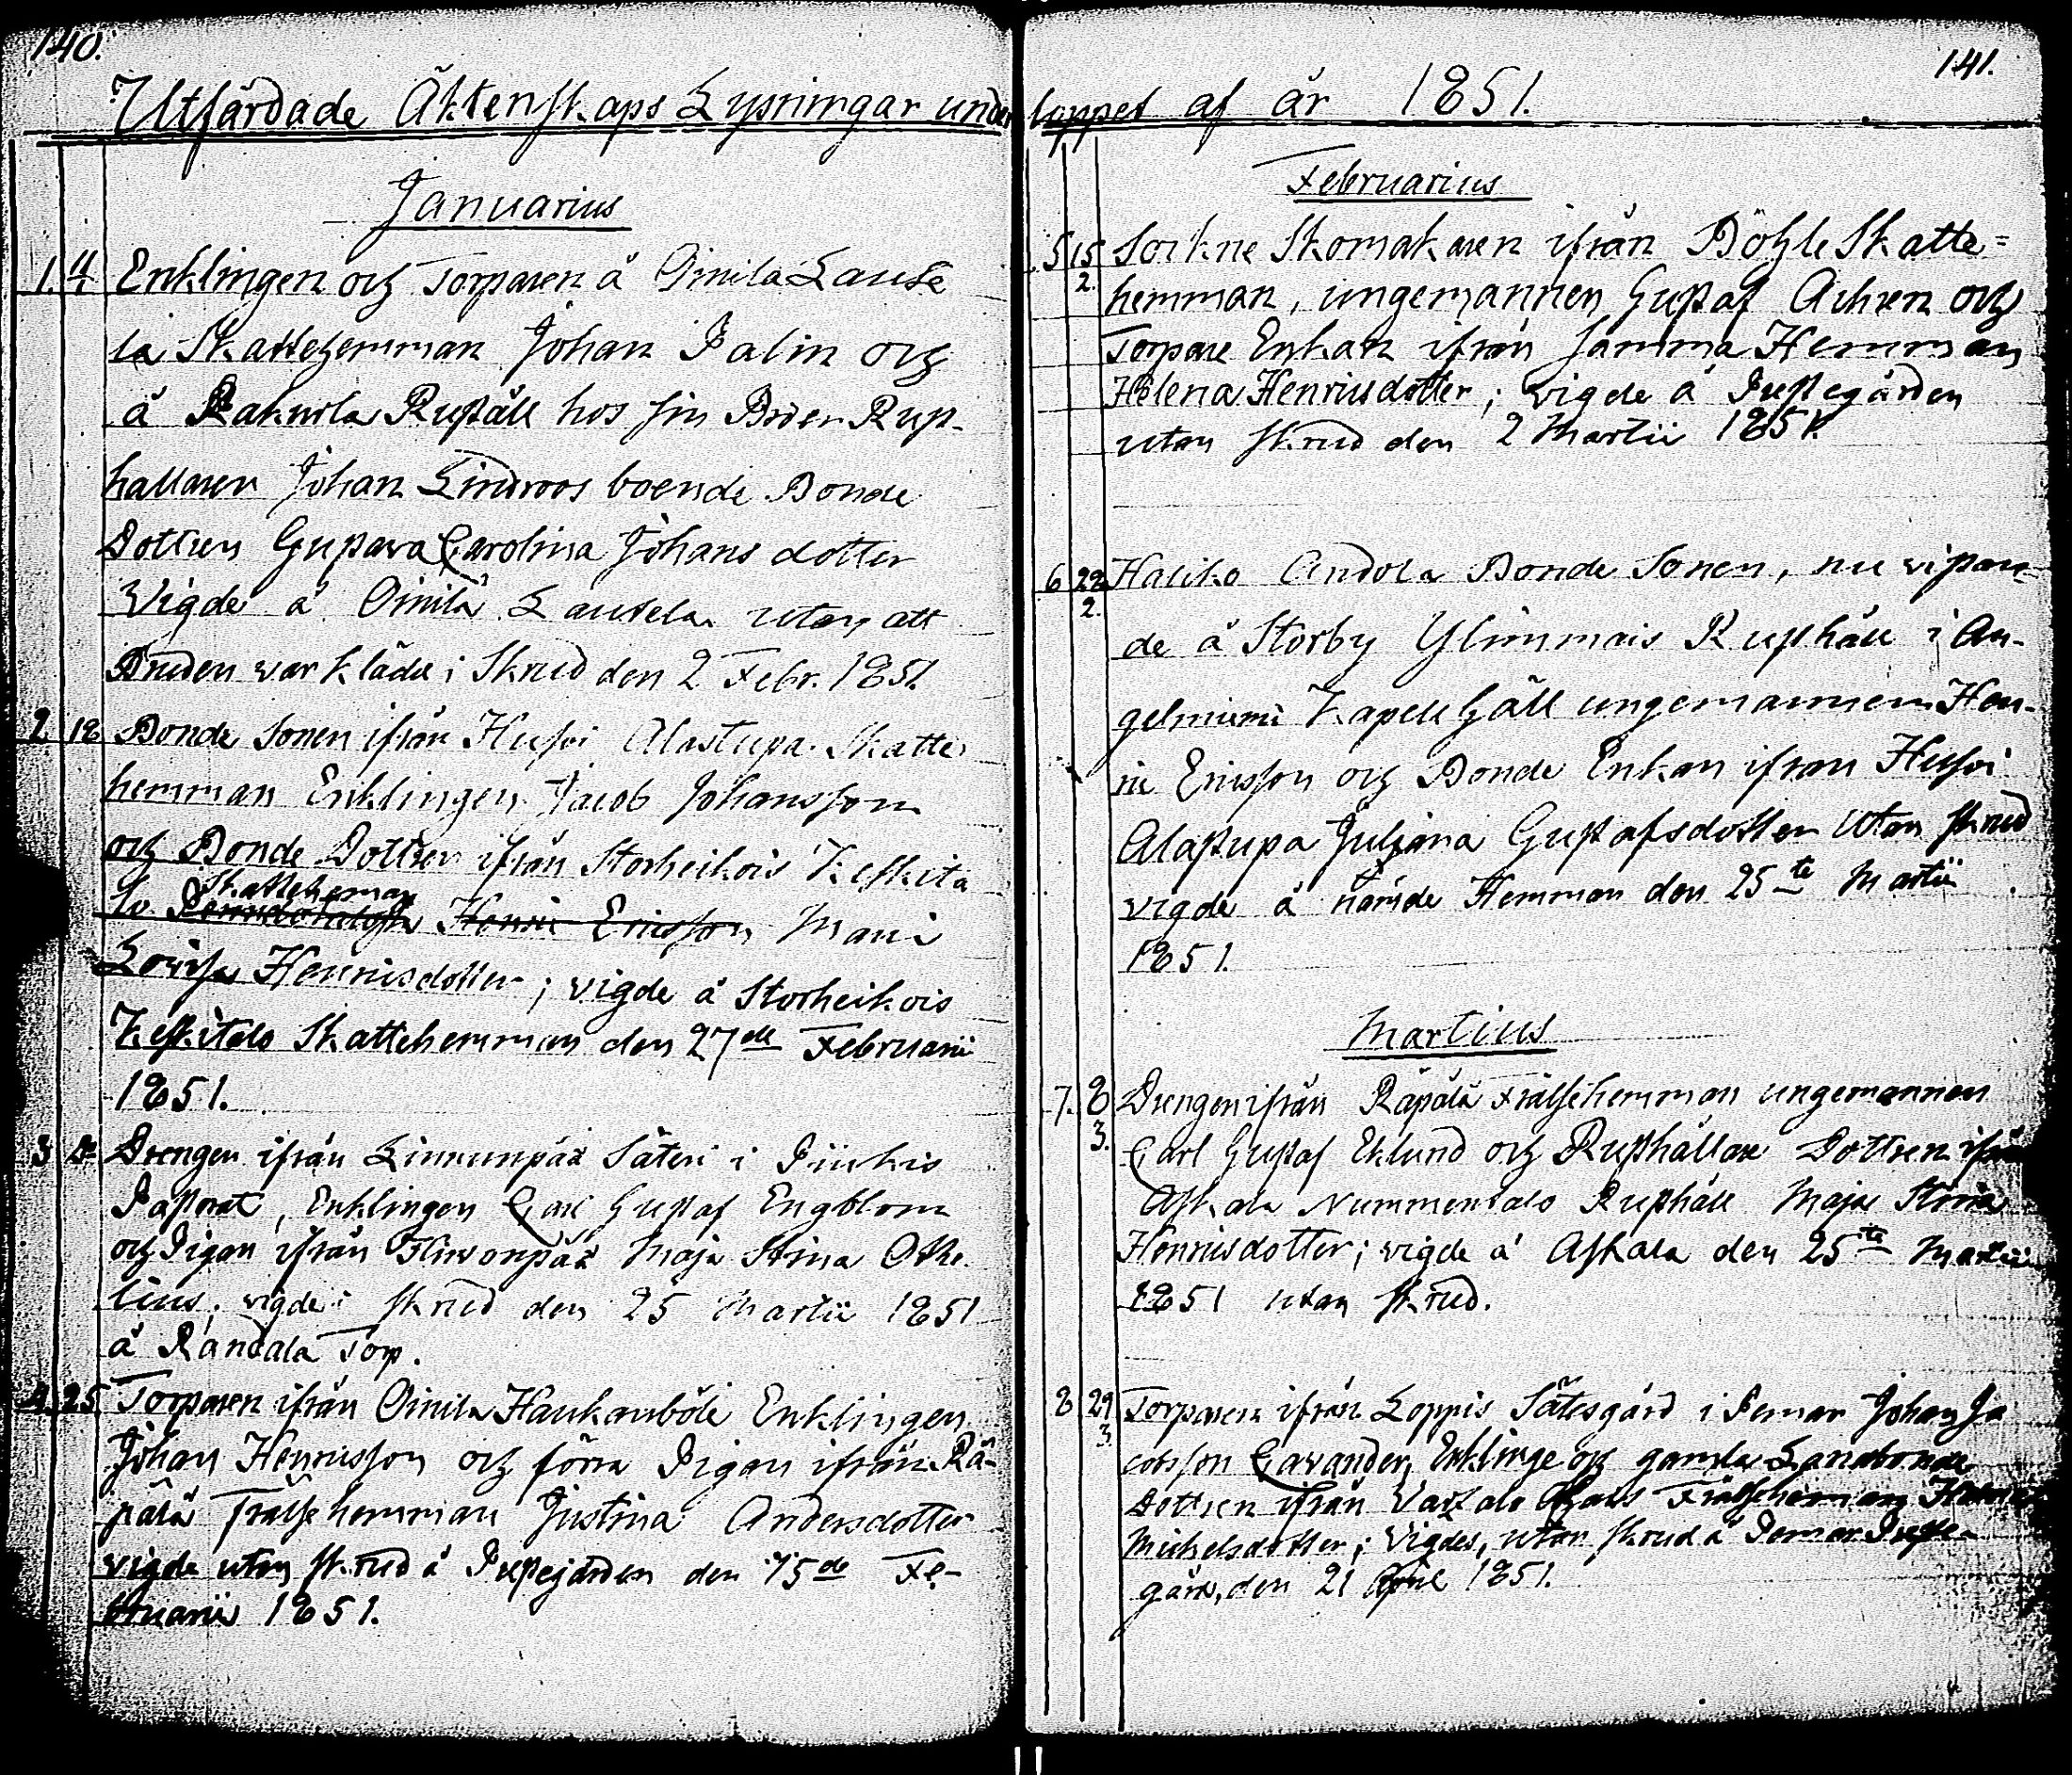 140.
Utfärdade Äktenskaps Lysningar under
Januarius
1. 4/1 Enklingen och Torparen å Oinila Lause
la Skattehemman Johan Palin och
å Rakuola Rusthåll hos sin Broder Rust-
hållaren Johan Lindroos boende Bonde
Dottren Gustava Carolina Johans dotter
Vigde å Oinila Lausela utan att
Bruden var klädd i Skrud den 2 Febr. 1851.
2 18 Bonde Sonen ifrån Hufvi Alastupa Skatte
hemman Enklingen Jacob Johansson
och Bonde Dottren ifrån Storheikois Keskita
lo Skattehemman Henric Ericsson Mari
Lovisa Henricsdotter; vigde å Storheikois
Keskitalo Skattehemman den 27de Februarii
1851.
3 Drengen ifrån Linnunpää Säteri i Piikis
Pastorat, Enklingen Carl Gustaf Engblom
och Pigan ifrån Hirvonpää Maja Stina Othe
lius; vigde i skrud den 25 Martii 1851
å Randala Torp.
4. 25 Torparen ifrån Oinila Haukanböle Enklingen
Johan Henricsson och förra Pigan ifrån Rä-
pälä Frälsehemman Justina Andersdotter
vigde utan skrud å Prestegården den 15de Fe-
bruarii 1851.
141.
loppet af år 1851.
Februarius
5 15/2. Sockne Skomakaren ifrån Böhle Skatte=
hemman, ungemannen Gustaf Achren och
Torpare Enkan ifrån samma Hemman
Helena Henricsdotter; vigde å Prestegården
utan skrud den 2 Martii 1851.
6 22/2. Haliko Andola Bonde Sonen, nu vistan-
de å Storby Ylimmais Rusthåll i An-
gelniemi Kapell Gäll ungemannen Hen-
ric Ericsson och Bonde Enkan ifrån Hufvi
Alastupa Juliana Gustafsdotter utan skrud
vigde å nämde Hemman den 25te Martii
1851.
Martius
7. 8/3. Drengen ifrån Räpälä Frälsehemman ungemannen
Carl Gustaf Eklund och Rusthållare Dottren ifrån
Askala Nummentalo Rusthåll Maja Stina
Henricsdotter; vigde å Askala den 25te Martii
1851 utan skrud.
8 29/3. Torparen ifrån Loppis Sätesgård i Pemar Johan Ja
cobsson Cavander, Enklinge och gamla Landbonde
Dottren ifrån Frälsehemman
Michelsdotter; Vigdes, utan skrud å Pemar Preste-
gård, den 21 April 1851.